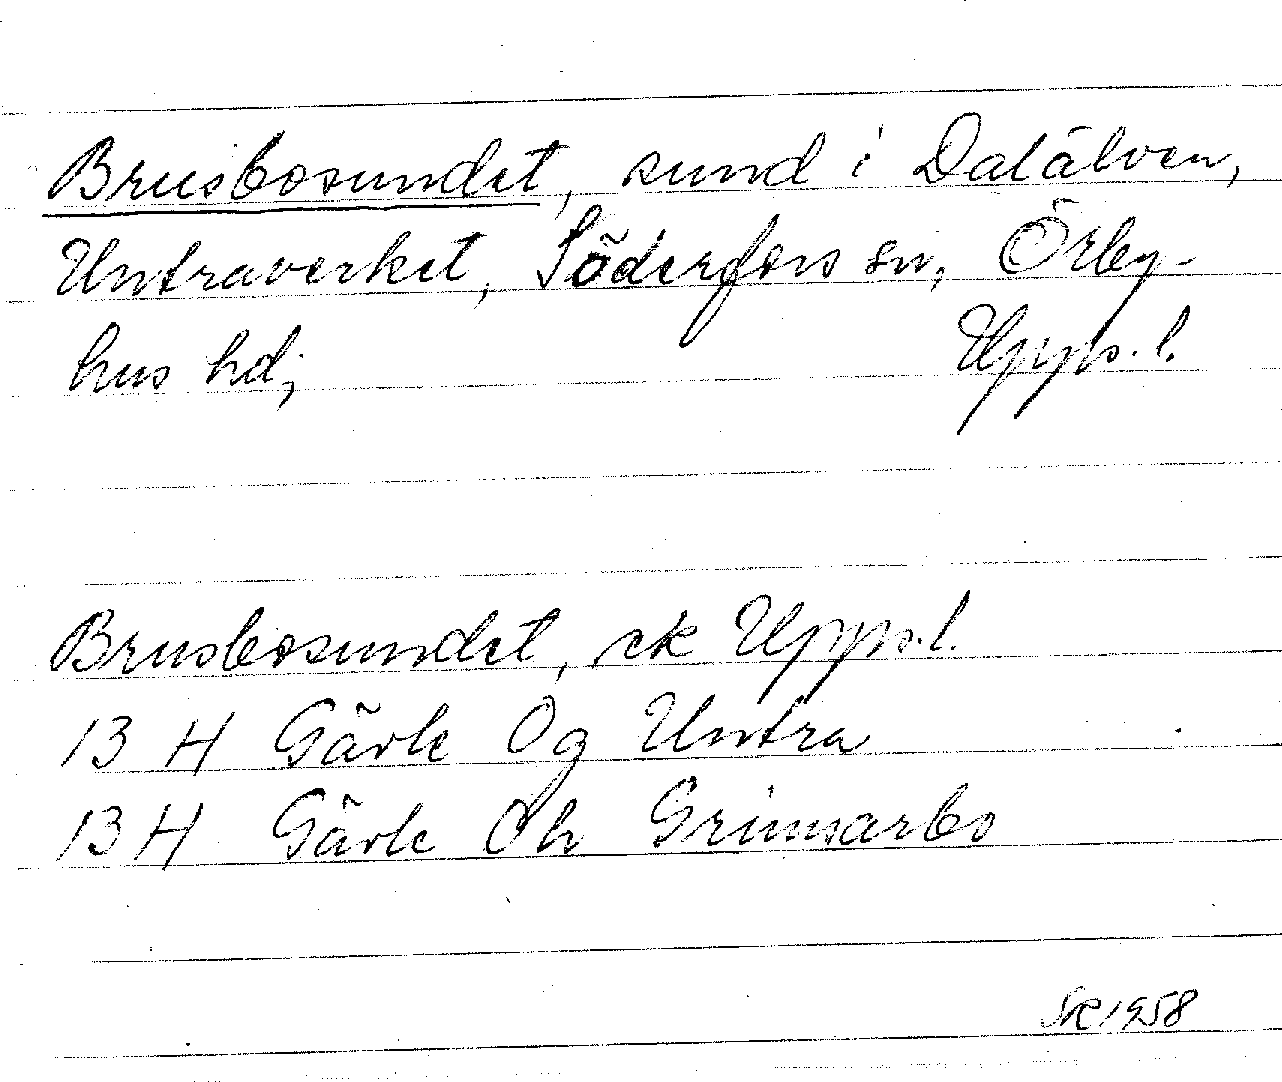 Brusbosundet, sund i Dalälven,
Untraverket, Söderfors sn, Örby-
hus hd; Upps. l.
Brusbosundet, ek Upps. l.
13 H Gävle Og Untra
13 H Gävle Oh Grimsarbo
SR 1958